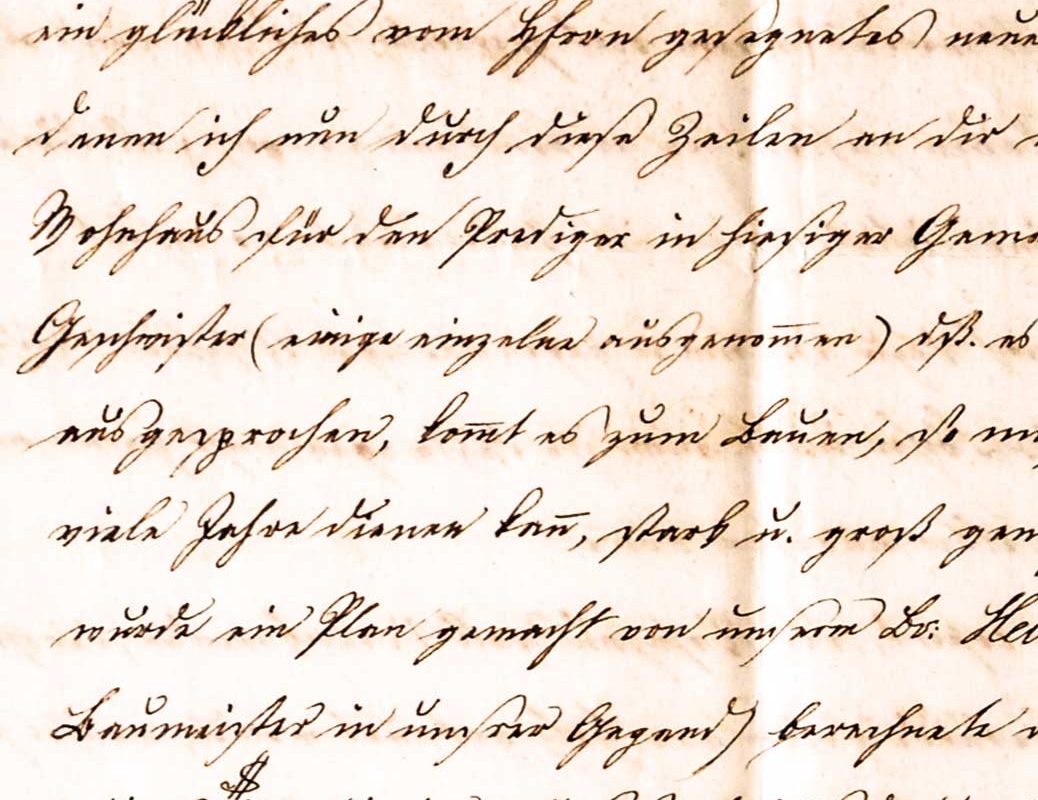 ein glückliches vom Herrn gesegnetes neue
denen ich nun durch diese Zeilen an dir
Wohnhaus für den Prediger in hiesiger Geme
Geschwister (einige einzelne ausgenom̅en) dß. es
ausgesprochen, kom̅t es zum Bauen, so
viele Jahre dienen kan̅, stark u. groß gen
wurde ein Plan gemacht von unserm Br: Hei
Baumeister in unsrer Gegend) berechnete
$